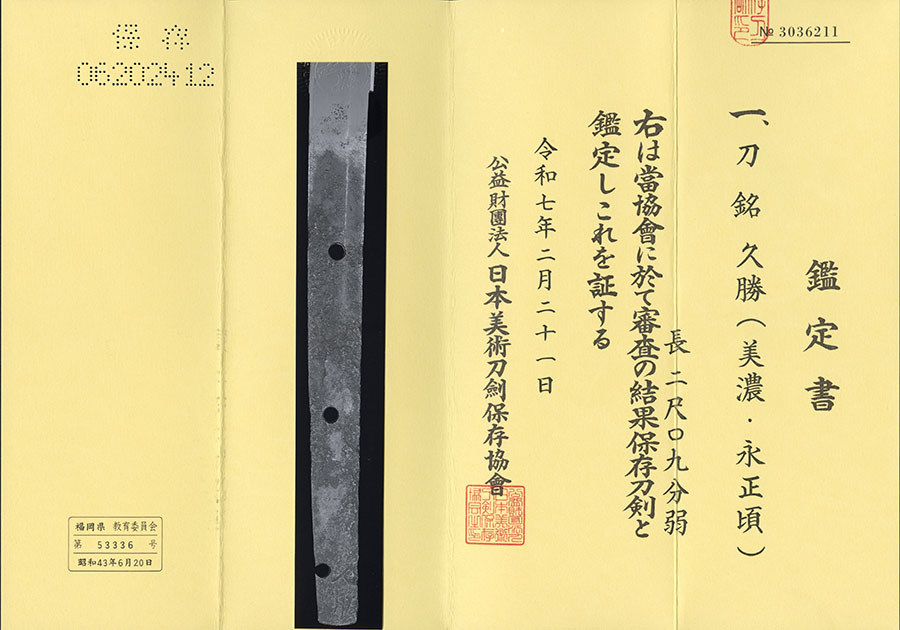 № 3036211
鑑定書
一、刀 銘 久勝(美濃・永正頃)
長 二尺〇九分弱
右は當協會に於て審査の結果保存刀剣と
鑑定しこれを証する
令和七年二月二十一日
公益財團法人 日本美術刀劍保存協會
保存
06202412
福岡県 教育委員会
第 53336 号
昭和43年6月20日